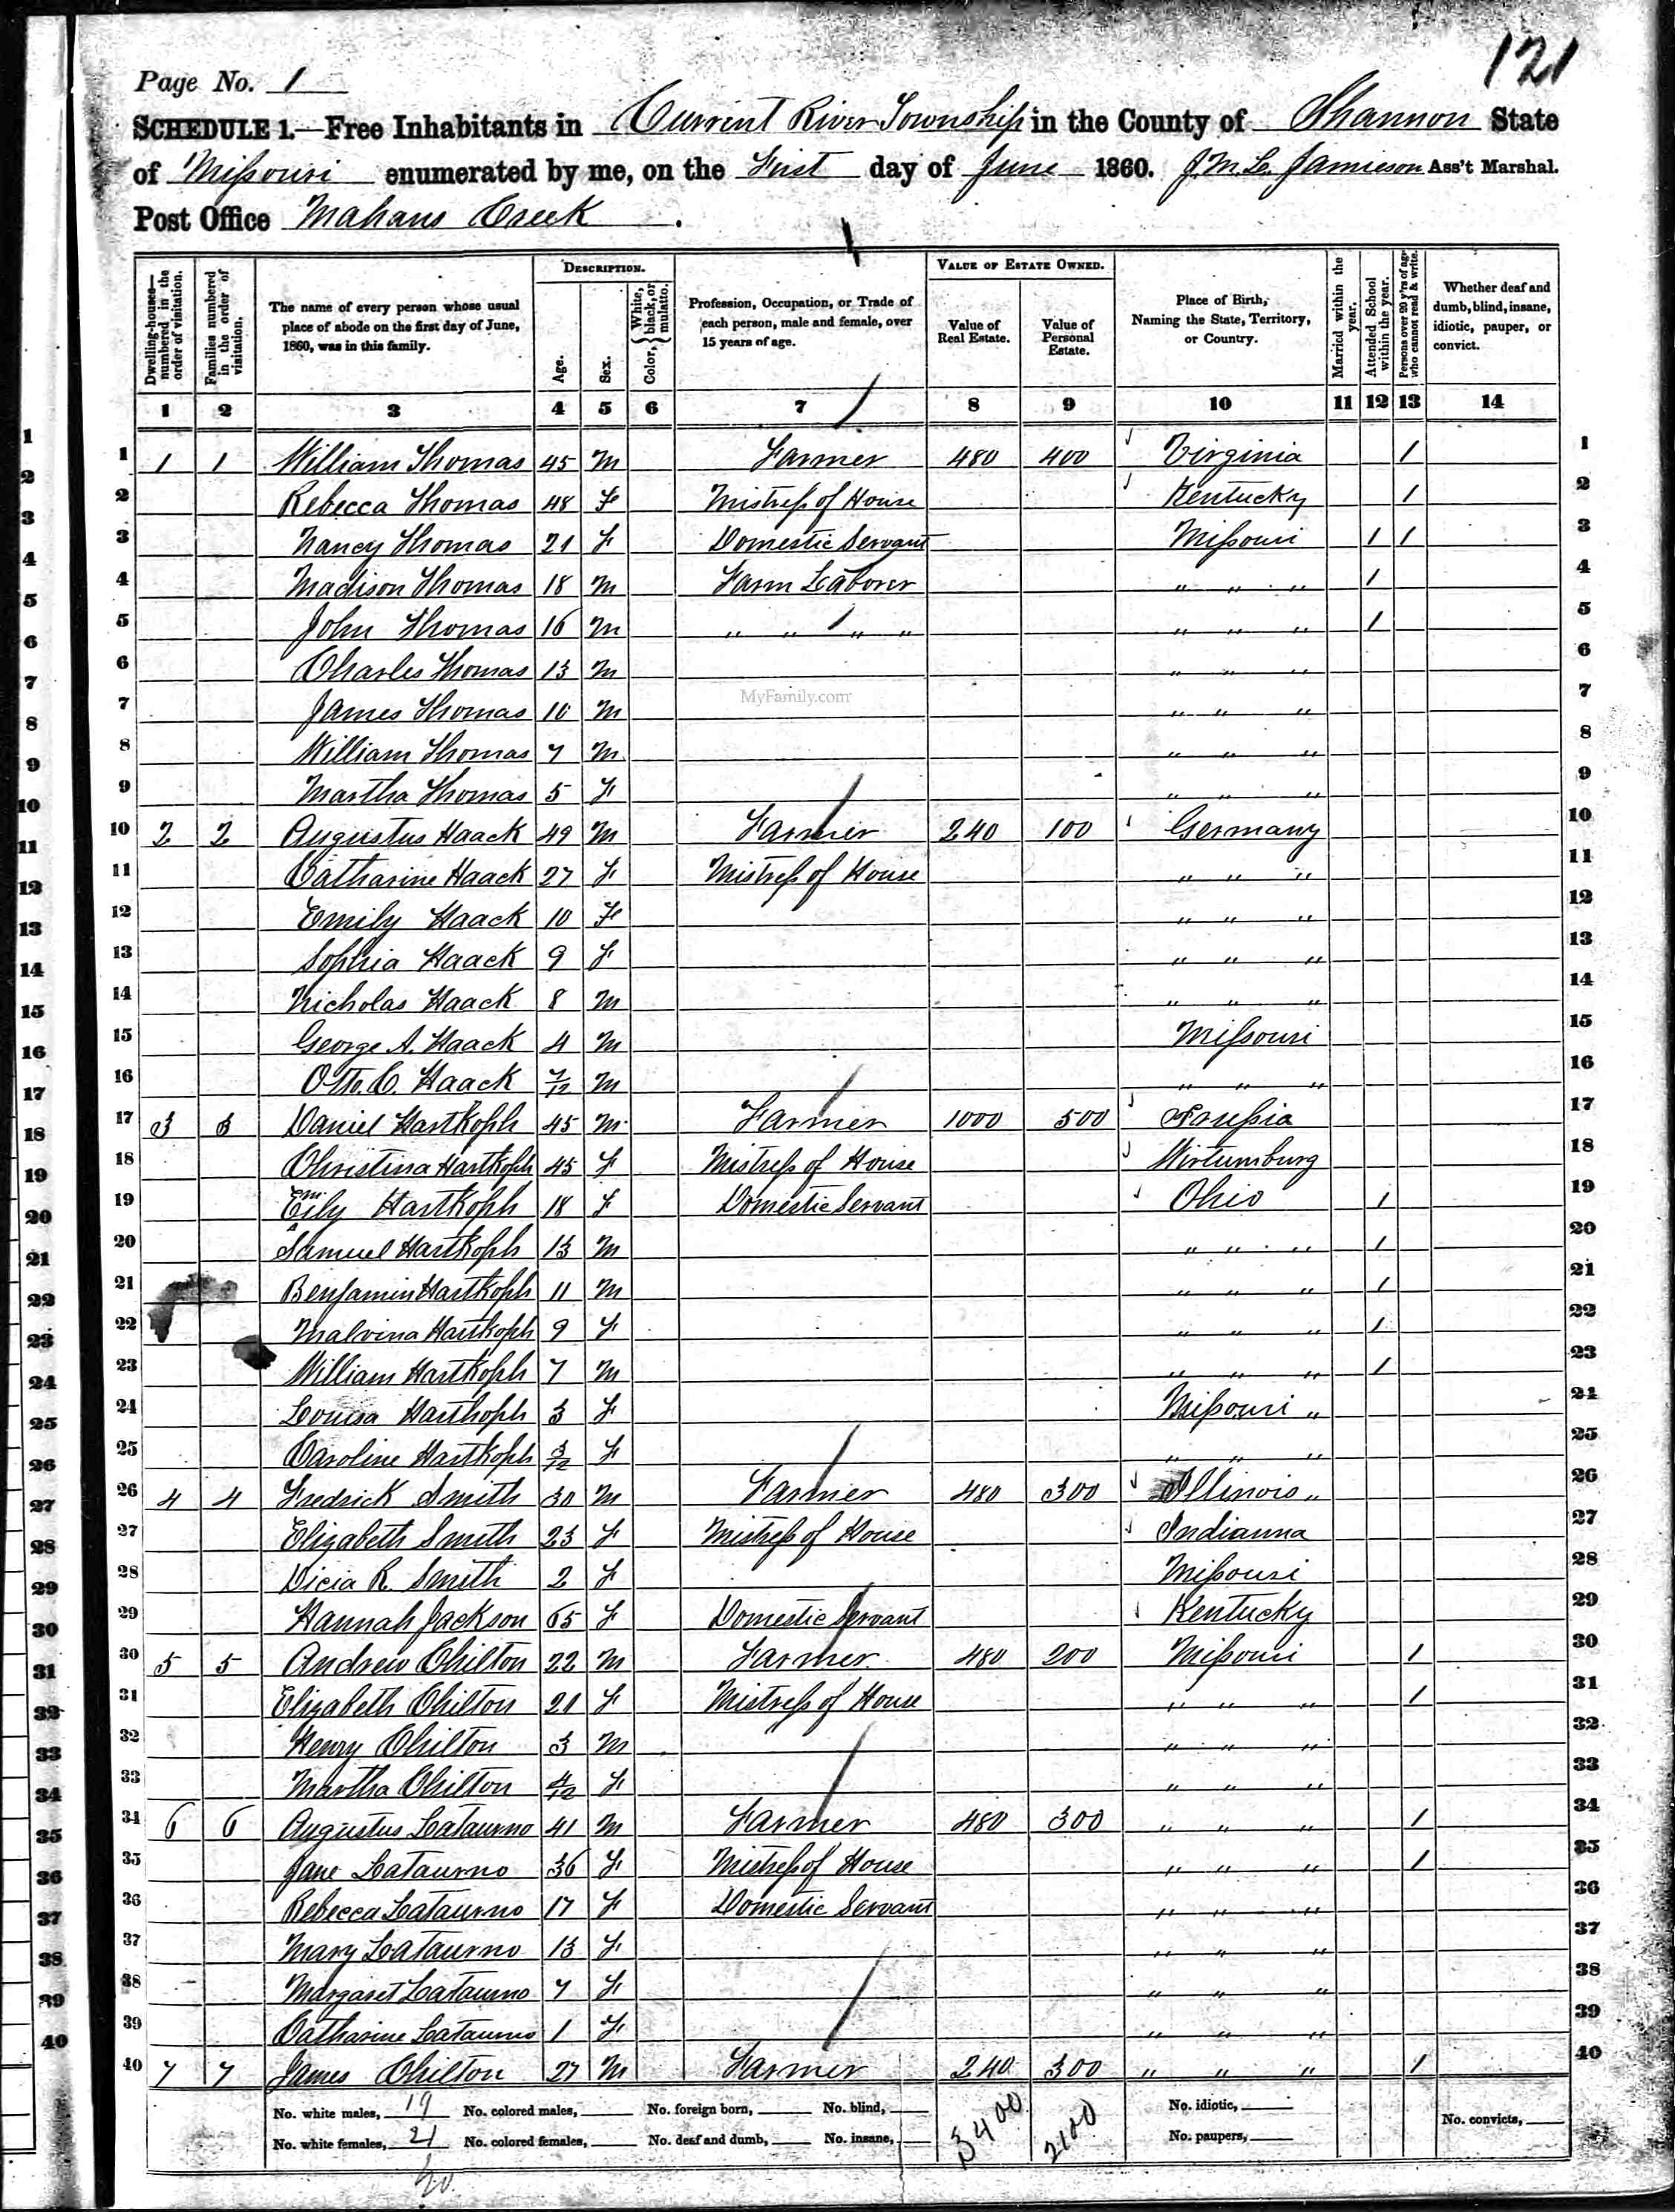 121
Page No. 1
SCHEDULE 1.—Free Inhabitants in Current River Township in the County of Shannon State
of Missouri enumerated by me, on the First day of June 1860. J. M. Le. Jamieson Ass't Marshal.
Post Office Mahans Creek.
Dwelling-houses—numbered in the order of visitation. Families numbered in the order of visitation. The name of every person whose usual place of abode on the first day of June, 1860, was in this family. Description. Age. Sex. Color, {White, black, or mulatto. Profession, Occupation, or Trade of each person, male and female, over 15 years of age. Value of Estate Owned. Value of Real Estate. Value of Personal Estate. Place of Birth, Naming the State, Territory, or Country. Married within the year. Attended School within the year. Persons over 20 y'rs of age who cannot read & write. Whether deaf and dumb, blind, insane, idiotic, pauper, or convict.
1 2 3 4 5 6 7 8 9 10 11 12 13 14
1 1 1 William Thomas 45 M Farmer 480 400 Virginia 1 1
2 Rebecca Thomas 48 F Mistress of House Kentucky 1 2
3 Nancy Thomas 21 F Domestic Servant Missouri 1 1 3
4 Madison Thomas 18 M Farm Laborer " " " 1 4
5 John Thomas 16 M " " " " " " " 1 5
6 Charles Thomas 13 M " " " 6
7 James Thomas 10 M " " " 7
MyFamily.com
8 William Thomas 7 M " " " 8
9 Martha Thomas 5 F " " " 9
10 2 2 Augustus Haack 49 M Farmer 240 100 Germany 10
11 Catharine Haack 27 F Mistress of House " " " 11
12 Emily Haack 10 F " " " 12
13 Sophia Haack 9 F " " " 13
14 Nicholas Haack 8 M " " " 14
15 George A. Haack 4 M Missouri 15
16 Otto. C. Haack 7/12 M " " " 16
17 3 3 Daniel Hartkoph 45 M Farmer 1000 500 Prussia 17
18 Christina Hartkoph 45 F Mistress of House Wirtumburg 18
19 Emily Hartkoph 18 F Domestic Servant Ohio 1 19
20 Samuel Hartkoph 13 M " " " 1 20
21 Benjamin Hartkoph 11 M " " " 1 21
22 Malvina Hartkoph 9 F " " " 1 22
23 William Hartkoph 7 M " " " 1 23
24 Louisa Hartkoph 3 F Missouri " 24
25 Caroline Hartkoph 3/12 F " " " 25
26 4 4 Fredrick Smith 30 M Farmer 480 300 Illinois " 26
27 Elizabeth Smith 23 F Mistress of House Indianna 27
28 Dicia R. Smith 2 F Missouri 28
29 Hannah Jackson 65 F Domestic Servant Kentucky 29
30 5 5 Andrew Chilton 22 M Farmer 480 200 Missouri 1 30
31 Elizabeth Chilton 21 F Mistress of House " " " 1 31
32 Henry Chilton 3 M " " " 32
33 Martha Chilton 4/12 F " " " 33
34 6 6 Augustus Lataurno 41 M Farmer 480 300 " " " 1 34
35 Jane Lataurno 36 F Mistress of House " " " 1 35
36 Rebecca Lataurno 17 F Domestic Servant " " " 36
37 Mary Lataurno 13 F " " " 37
38 Margaret Lataurno 7 F " " " 38
39 Catharine Lataurno 1 F " " " 39
40 7 7 James Chilton 27 M Farmer 240 300 " " " 1 40
No. white males, 19 No. colored males, No. foreign born, No. blind, 3400 2100 No. idiotic, No. convicts,
No. white females, 21 No. colored females, No. deaf and dumb, No. insane, No. paupers,
40